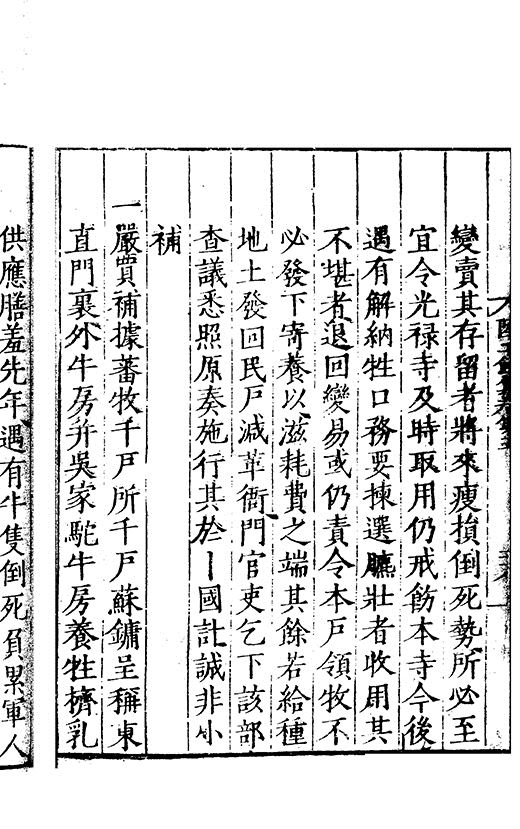 變賣其存留者將來瘦損倒死勢所必至
宜令光禄寺及時取用仍戒飭本寺今後
遇有解納牲口務要揀選臕壯者收用其
不堪者退回變易或仍責令本戸領牧不
必發下寄養以滋耗費之端其餘若給種
地土發回民戸减革衙門官吏乞下該部
查議悉照原奏施行其於國計誠非小
補
一嚴買補據蕃牧千戸所千戸蘇鏞呈稱東
直門裏外牛房并吳家駝牛房養牲擠乳
供應膳羞先年遇有牛隻倒死負累軍人